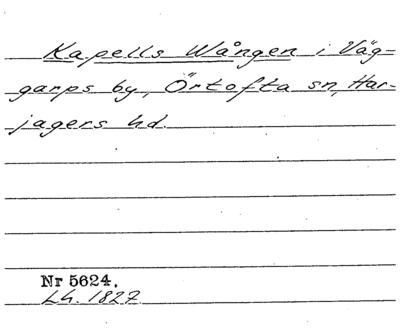 Kapells Wången i Väg-
garps by, Örtofta sn, Har-
jagers hd.
Nr 5624.
Lh. 1827